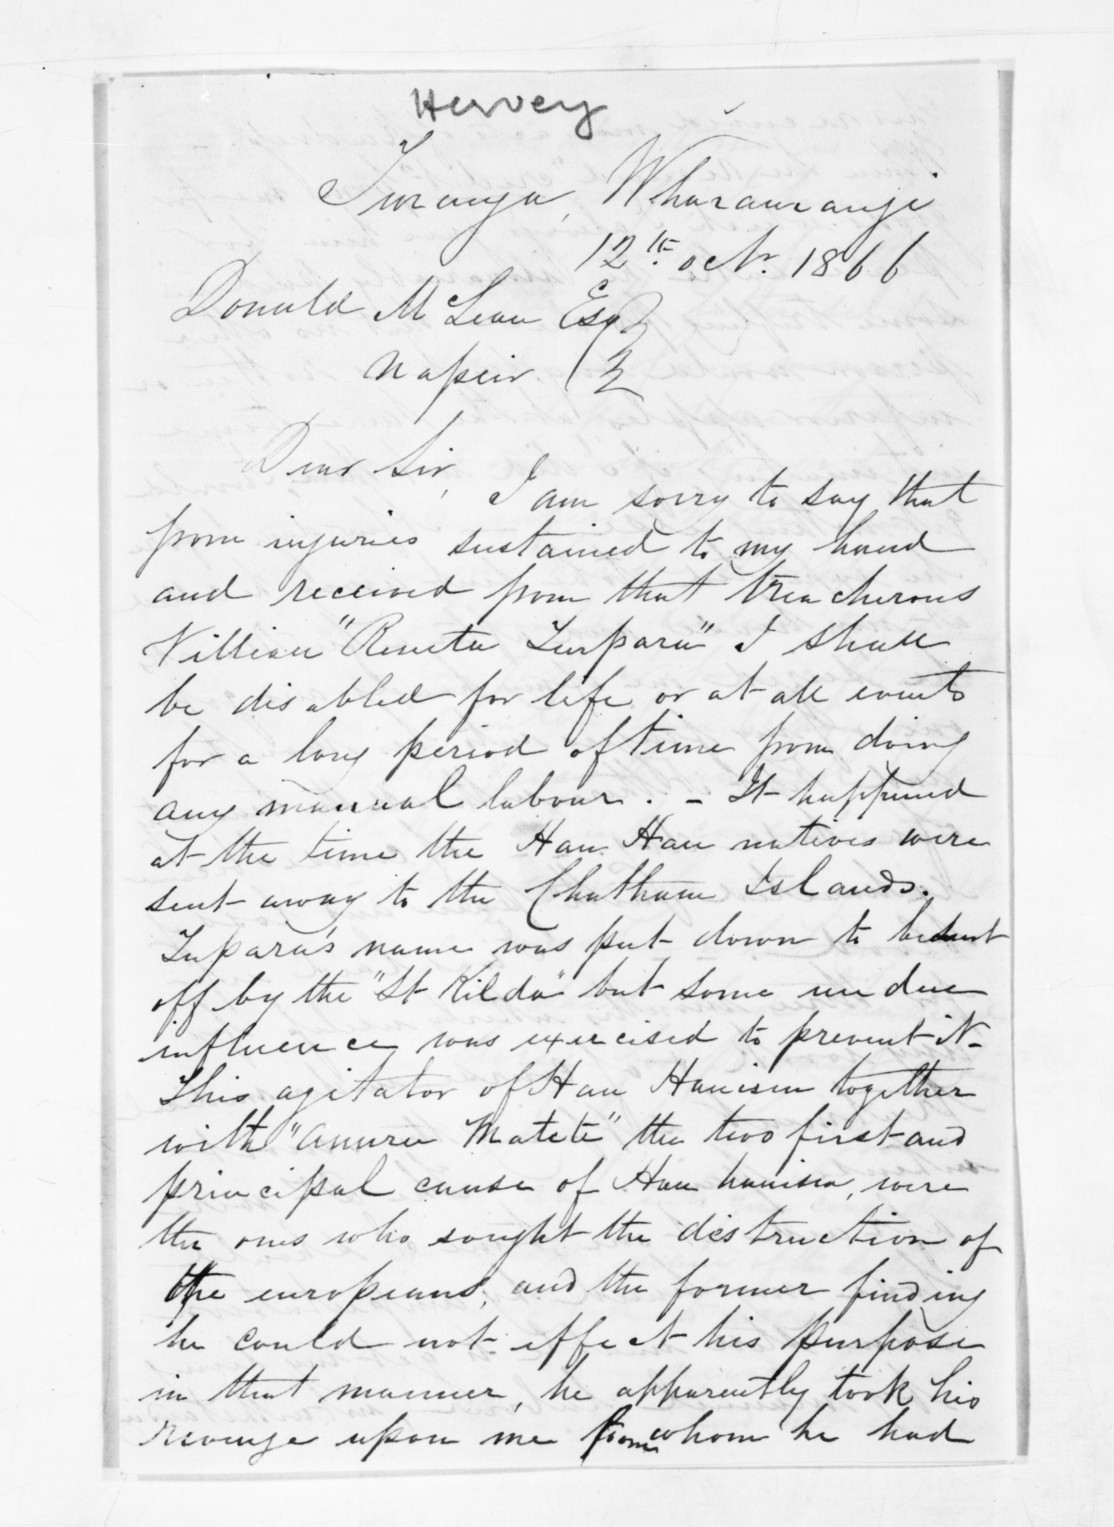 Hervey
Turanga, Wharauranga
12th. octr. 1866
Donald McLean Esqr
Napeir
Dear Sir,
I am sorry to say that
from injuries sustained to my hand
and received from that treacherous
Villian "Reneta Turpara" I shall
be disabled for life or at all events
for a long period of time from doing
any manual labour. - It happened
at the time the Hau Hau natives were
sent away to the Chatham Islands.
Tupara's name was put down to be sent
off by the "St Kilda" but some undue
influence was exercised to prevent it-
This agitator of Hau Hauism together
with "Anuru Matete" the two first and
principal cause of Hau hauism, were
the ones who sought the distruction of
the europeans, and the former finding
he could not effect his purpose
in that manner, he apparently took his
revenge upon me from whom he had